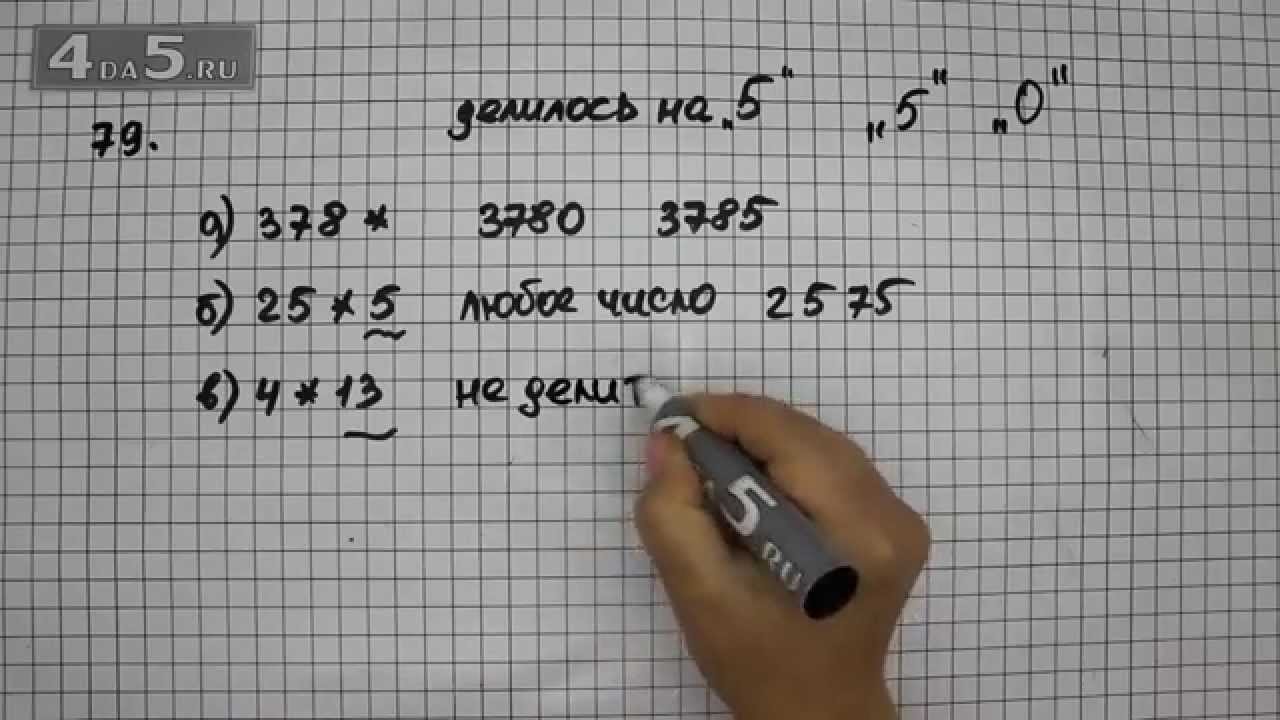 4DA5.RU
79. делилось на „5" „5" „0"
а) 378* 3780 3785
б) 25*5 любое число 2575
в) 4*13 не делит
5.RU